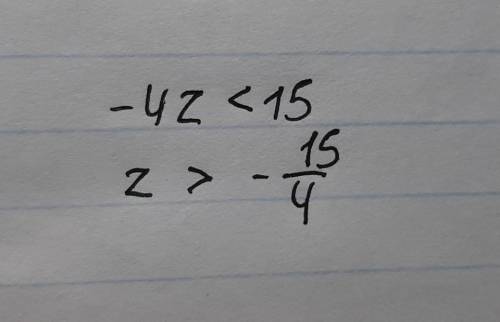 -4z < 15
z > - 15/4